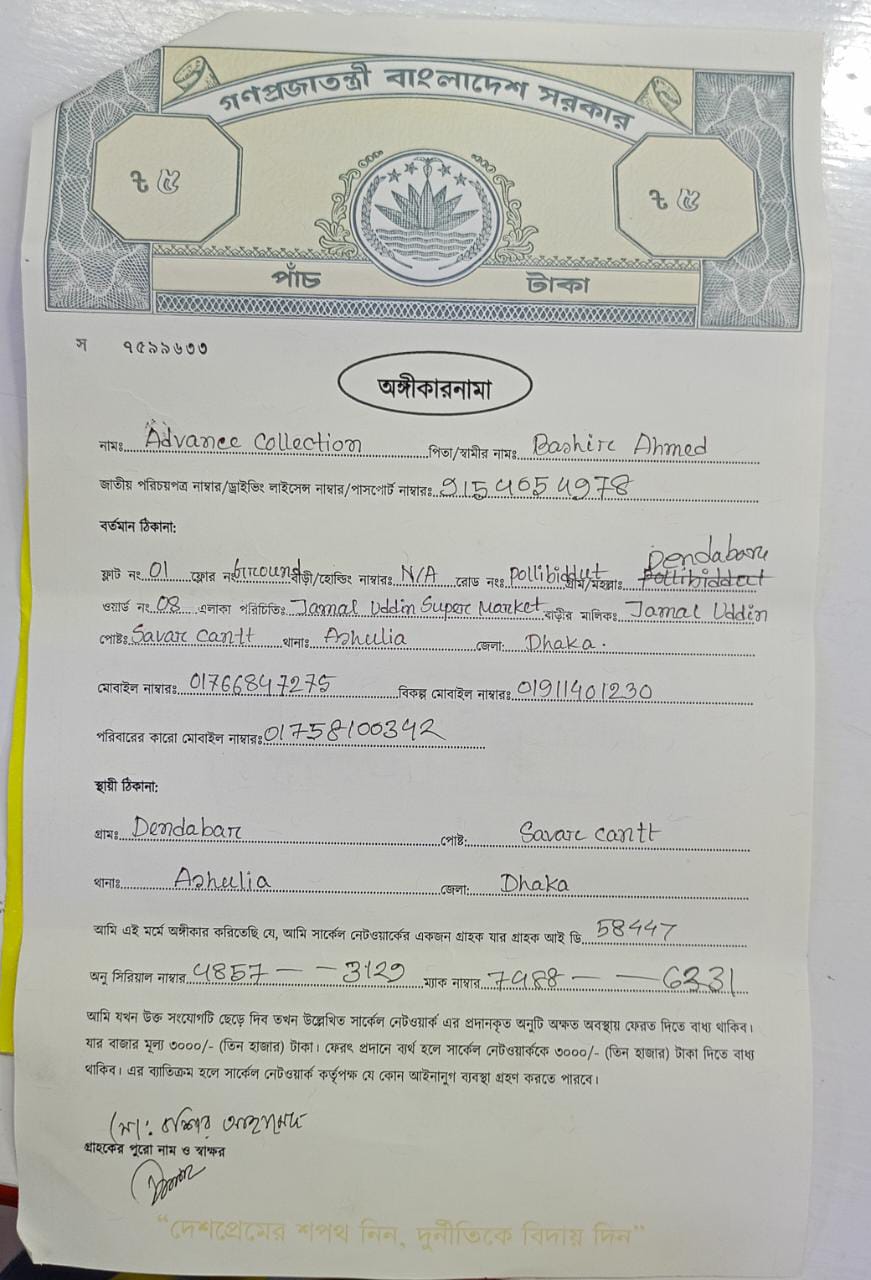 গণপ্রজাতন্ত্রী বাংলাদেশ সরকার
৳ ৫ ৳ ৫
পাঁচ টাকা
স ৭৫৯৯৬৩৩
অঙ্গীকারনামা
নামঃ Advance Collection পিতা/স্বামীর নামঃ Bashir Ahmed
জাতীয় পরিচয়পত্র নাম্বার/ড্রাইভিং লাইসেন্স নাম্বার/পাসপোর্ট নাম্বারঃ 9154654978
বর্তমান ঠিকানা:
ফ্লাট নং 01 ফ্লোর নং Ground বাড়ী/হোল্ডিং নাম্বারঃ N/A রোড নংঃ Pollibiddut গ্রাম/মহল্লাঃ Dendabaru
ওয়ার্ড নং 08 এলাকা পরিচিতিঃ Jamal Uddin Super Market বাড়ীর মালিকঃ Jamal Uddin
পোষ্টঃ Savar Cantt থানাঃ Ashulia জেলা: Dhaka.
মোবাইল নাম্বারঃ 01766847275 বিকল্প মোবাইল নাম্বারঃ 01911401230
পরিবারের কারো মোবাইল নাম্বারঃ 01758100342
স্থায়ী ঠিকানা:
গ্রামঃ Dendabar পোষ্ট: Savar Cantt
থানাঃ Ashulia জেলা: Dhaka
আমি এই মর্মে অঙ্গীকার করিতেছি যে, আমি সার্কেল নেটওয়ার্কের একজন গ্রাহক যার গ্রাহক আই ডি 58447
অনু সিরিয়াল নাম্বার 4857 — – 3129 ম্যাক নাম্বার 7488 — — 6331
আমি যখন উক্ত সংযোগটি ছেড়ে দিব তখন উল্লেখিত সার্কেল নেটওয়ার্ক এর প্রদানকৃত অনুটি অক্ষত অবস্থায় ফেরত দিতে বাধ্য থাকিব।
যার বাজার মূল্য ৩০০০/- (তিন হাজার) টাকা। ফেরৎ প্রদানে ব্যর্থ হলে সার্কেল নেটওয়ার্ককে ৩০০০/- (তিন হাজার) টাকা দিতে বাধ্য
থাকিব। এর ব্যাতিক্রম হলে সার্কেল নেটওয়ার্ক কর্তৃপক্ষ যে কোন আইনানুগ ব্যবস্থা গ্রহণ করতে পারবে।
মো: বশির আহমেদ
গ্রাহকের পুরো নাম ও স্বাক্ষর
"দেশপ্রেমের শপথ নিন, দুর্নীতিকে বিদায় দিন"